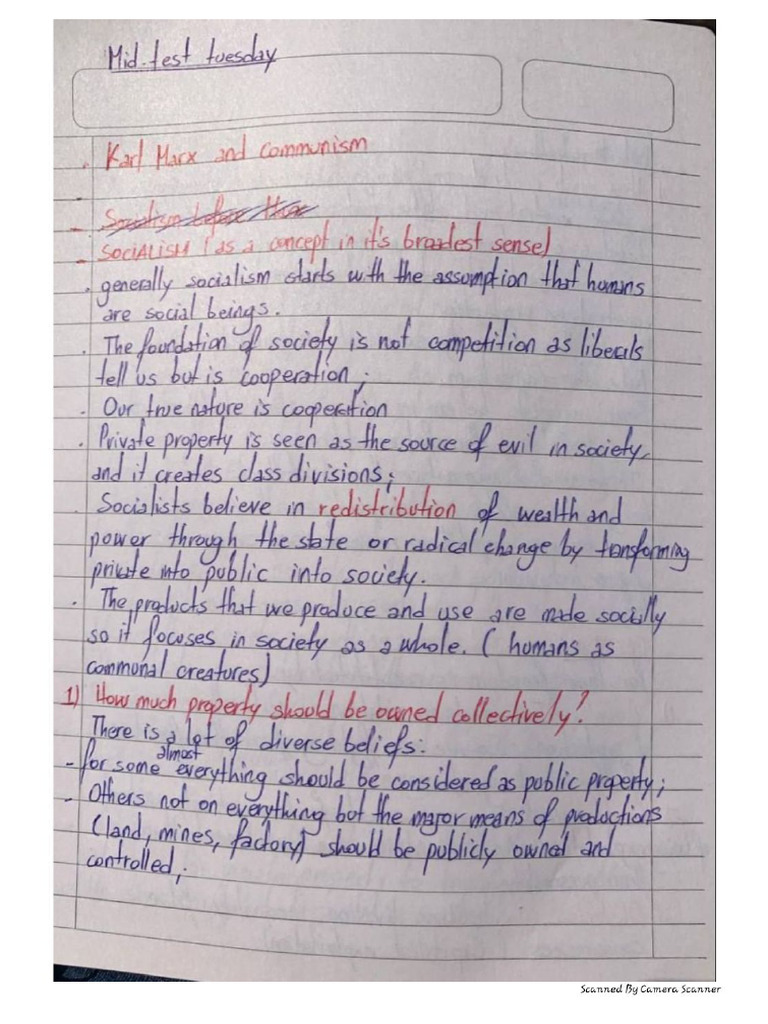 Mid-test tuesday
. Karl Marx and communism
-
- Socialism before Marx
- SOCIALISM (as a concept in it's broadest sense)
. generally socialism starts with the assumption that humans
are social beings.
. The foundation of society is not competition as liberals
tell us but is cooperation;
. Our true nature is cooperation
. Private property is seen as the source of evil in society,
and it creates class divisions;
. Socialists believe in redistribution of wealth and
power through the state or radical change by transforming
private into public into society.
. The products that we produce and use are made socially
so it focuses in society as a whole. ( humans as
communal creatures)
1) How much property should be owned collectively?
There is a lot of diverse beliefs:
- for some almost everything should be considered as public property;
- Others not on everything but the major means of productions
(land, mines, factory) should be publicly owned and
controlled;
Scanned By Camera Scanner